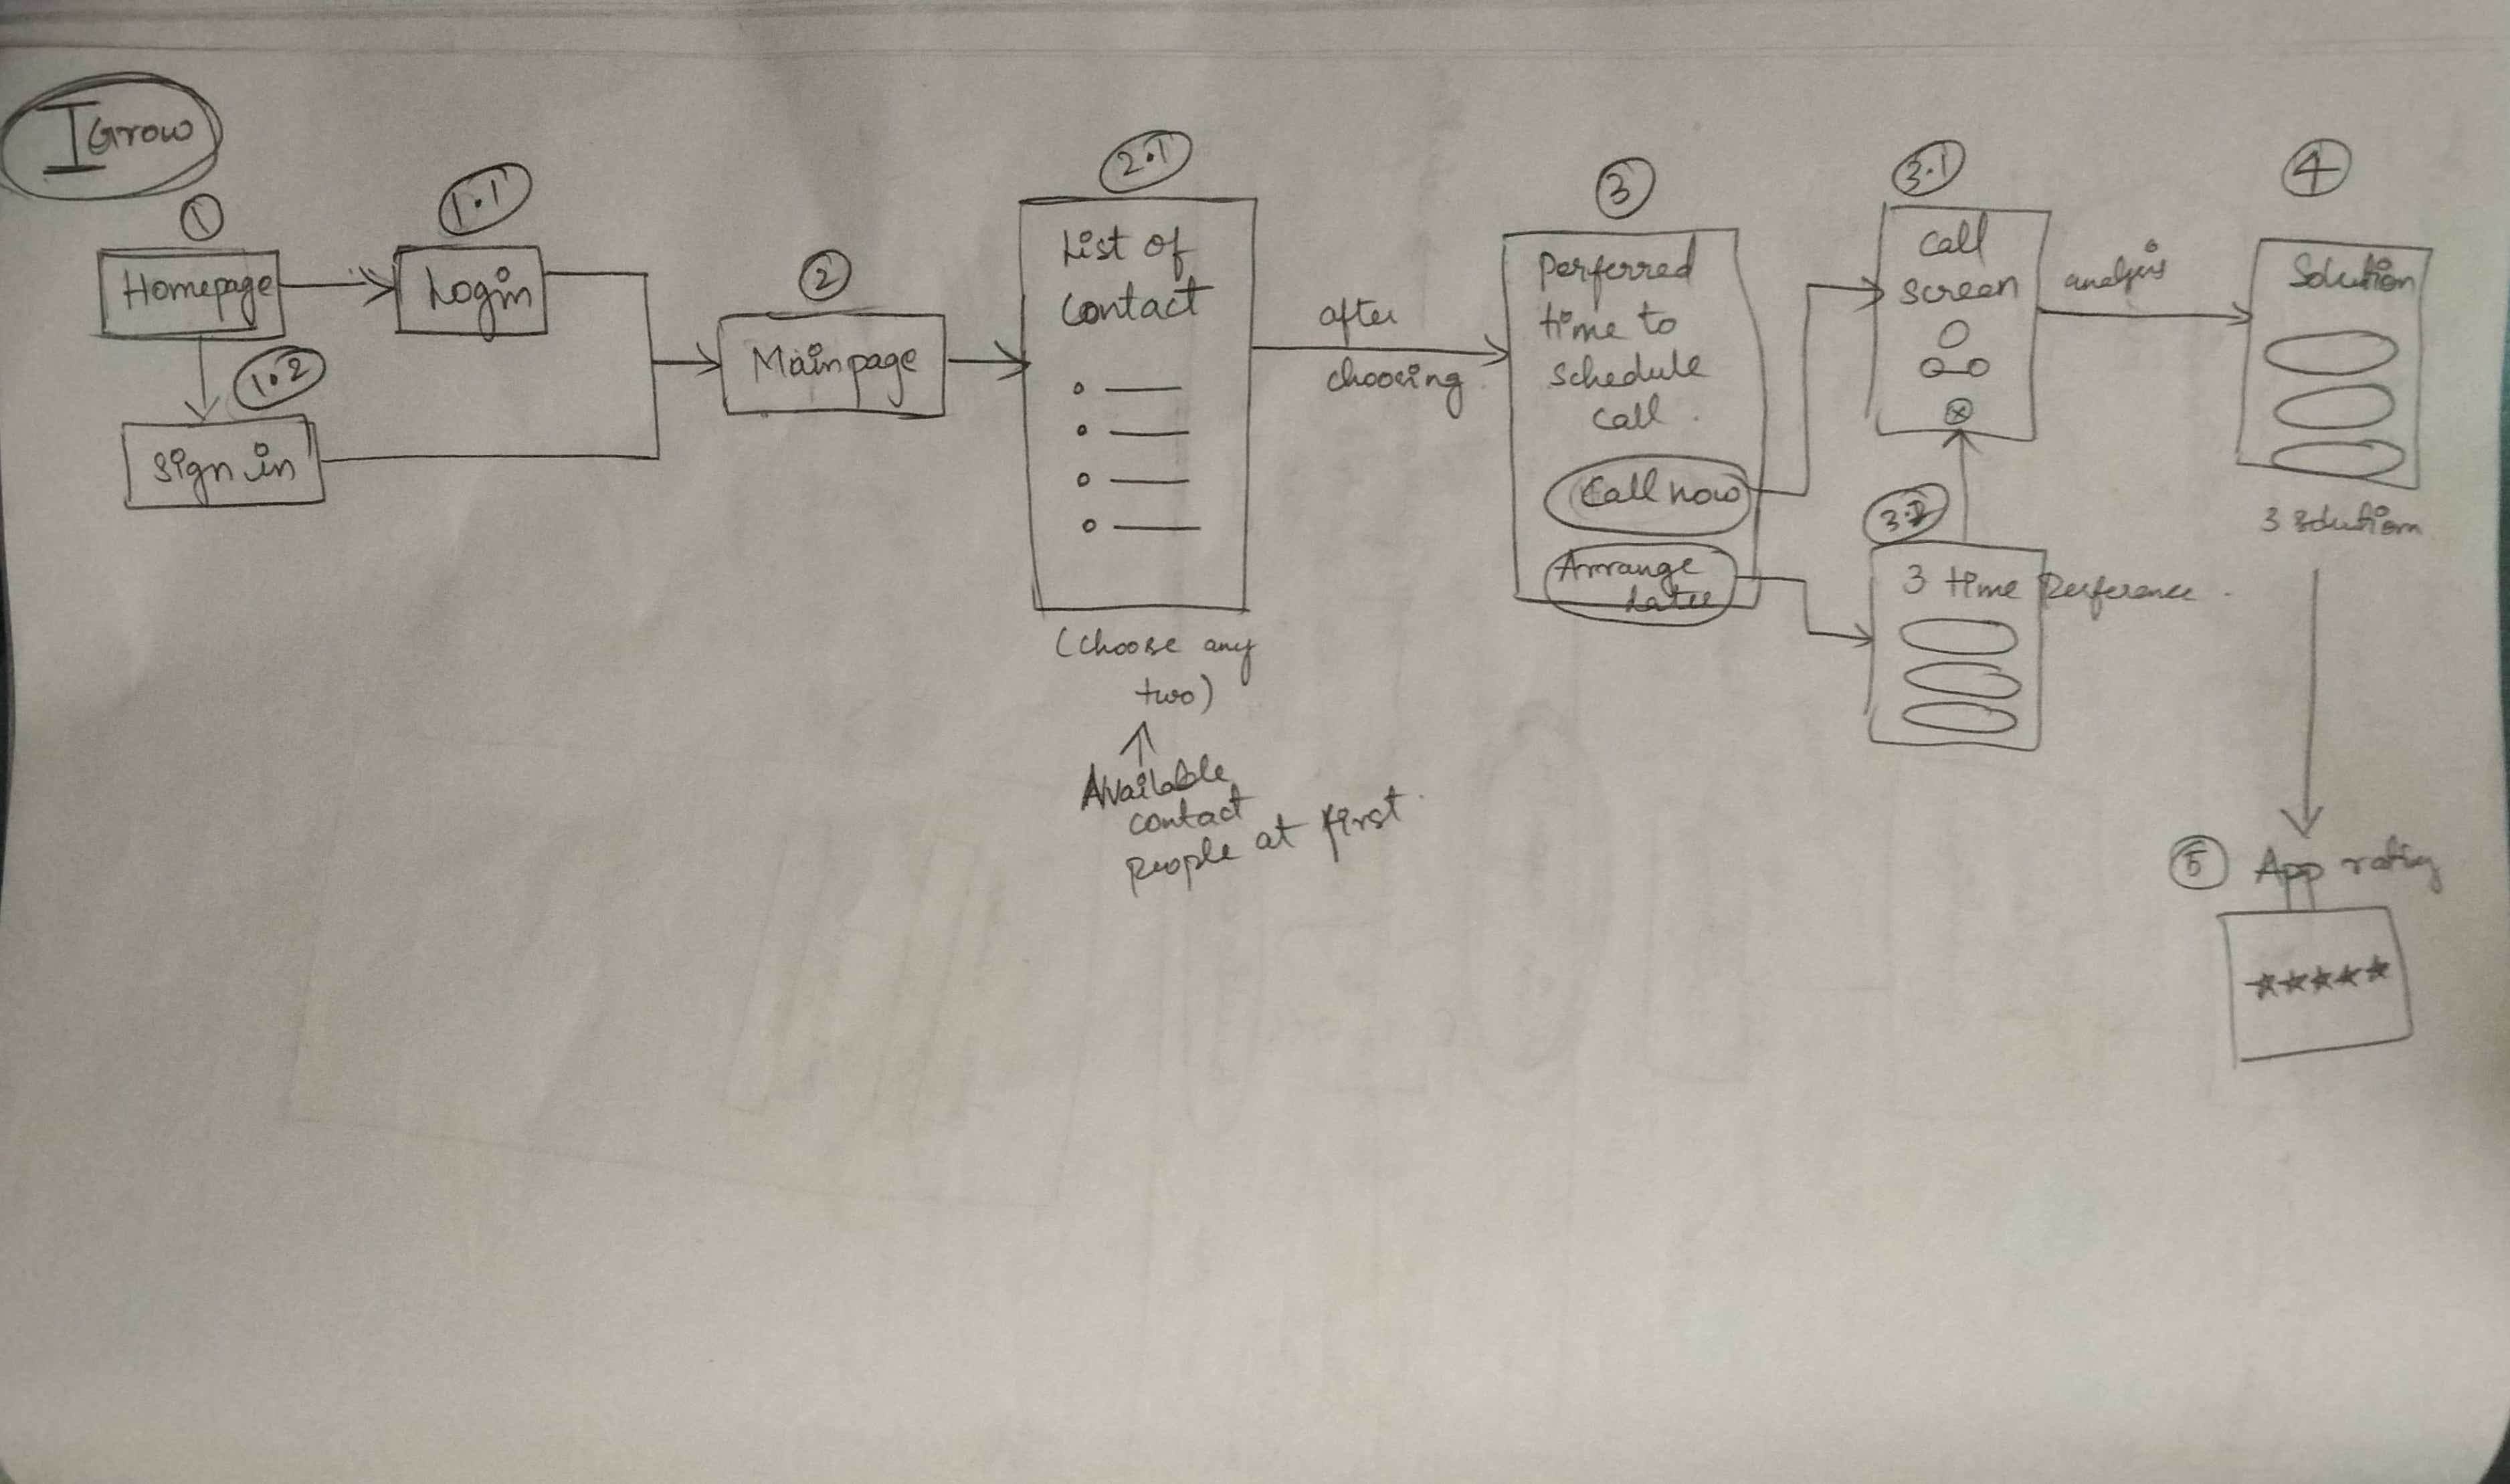 I Grow
1
Homepage
1.1
Login
1.2
Sign in
2
Mainpage
2.1
List of
Contact
(Choose any
two)
Available
contact
people at first.
after
choosing
3
Perferred
time to
schedule
call.
Call now
Arrange
later
3.1
Call
screen
3.2
3 time Perference.
analysis
4
Solution
3 solution
5 App rating